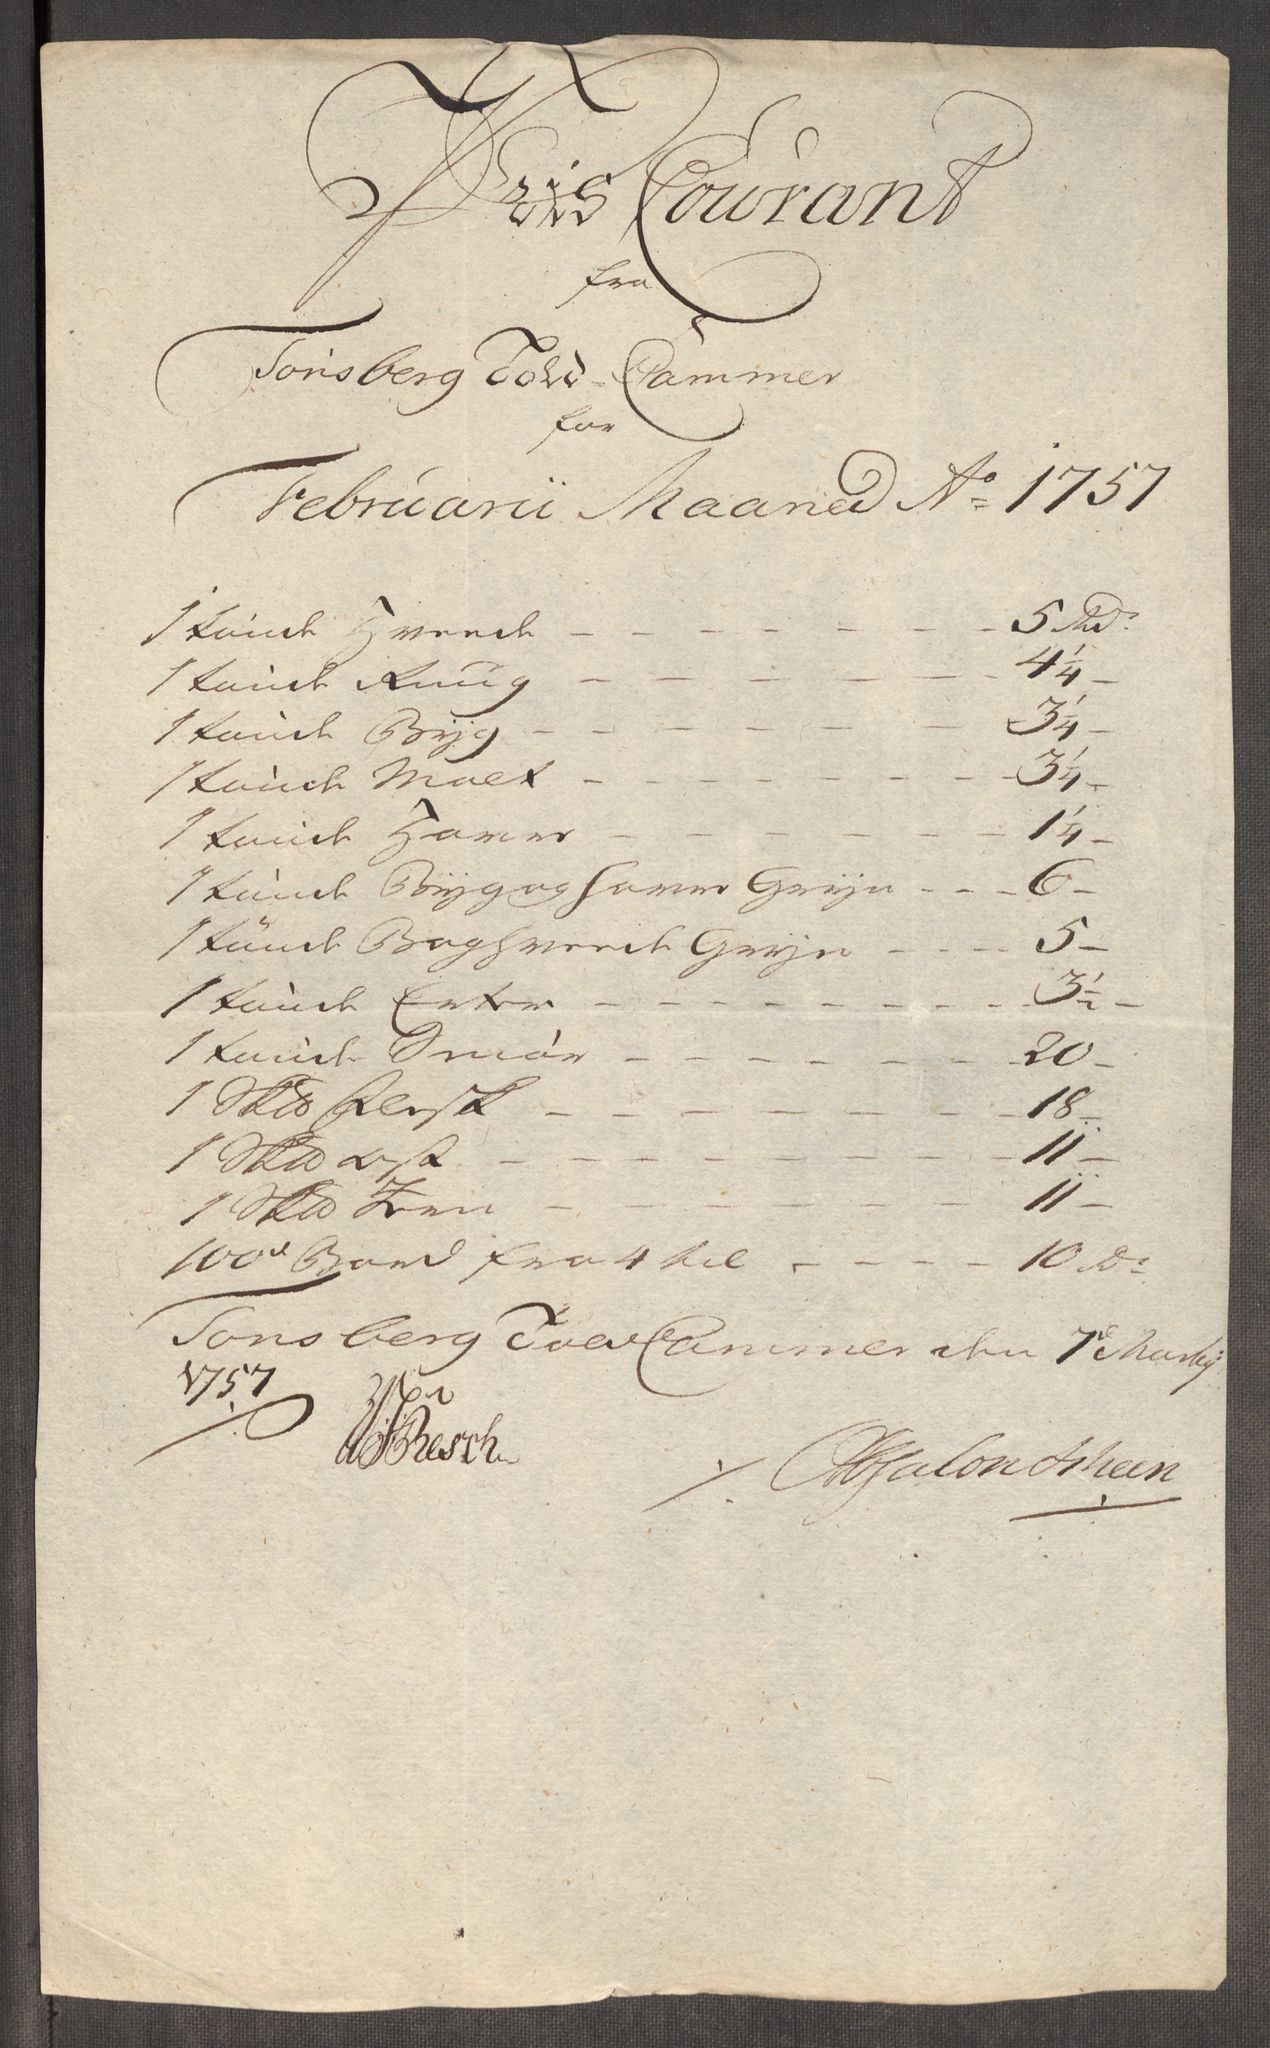 Pris Courant
fra
Tonsberg Told-Cammer
for
Februarii Maaned Ao 1757
1 tønde Hveede - - - - - - - 5 Rd:
1 tønde Rüüg - - - - - - - 4 1/4 -
1 tønde Bÿg - - - - - - - 3 1/4 -
1 tønde Malt - - - - - - - 3 1/4 -
1 tønde Havre - - - - - - - 1 1/4 -
1 tønde Bÿg og Havre Grÿn - - - 6 -
1 tønde Boghveede Grÿn - - - - 5 -
1 tønde Erter - - - - - - - 3 1/2 -
1 tønde Smør - - - - - - - 20 -
1 Skd Flesk - - - - - - - 18 -
1 Skd Ost - - - - - - - 11 -
1 Skd - - - - - - - 11 -
100d Bord fra 4 - - - - 10 Rd:
Tonsberg Told Cammer den 7de Martÿ
1757
Resch
Absalon Scheen